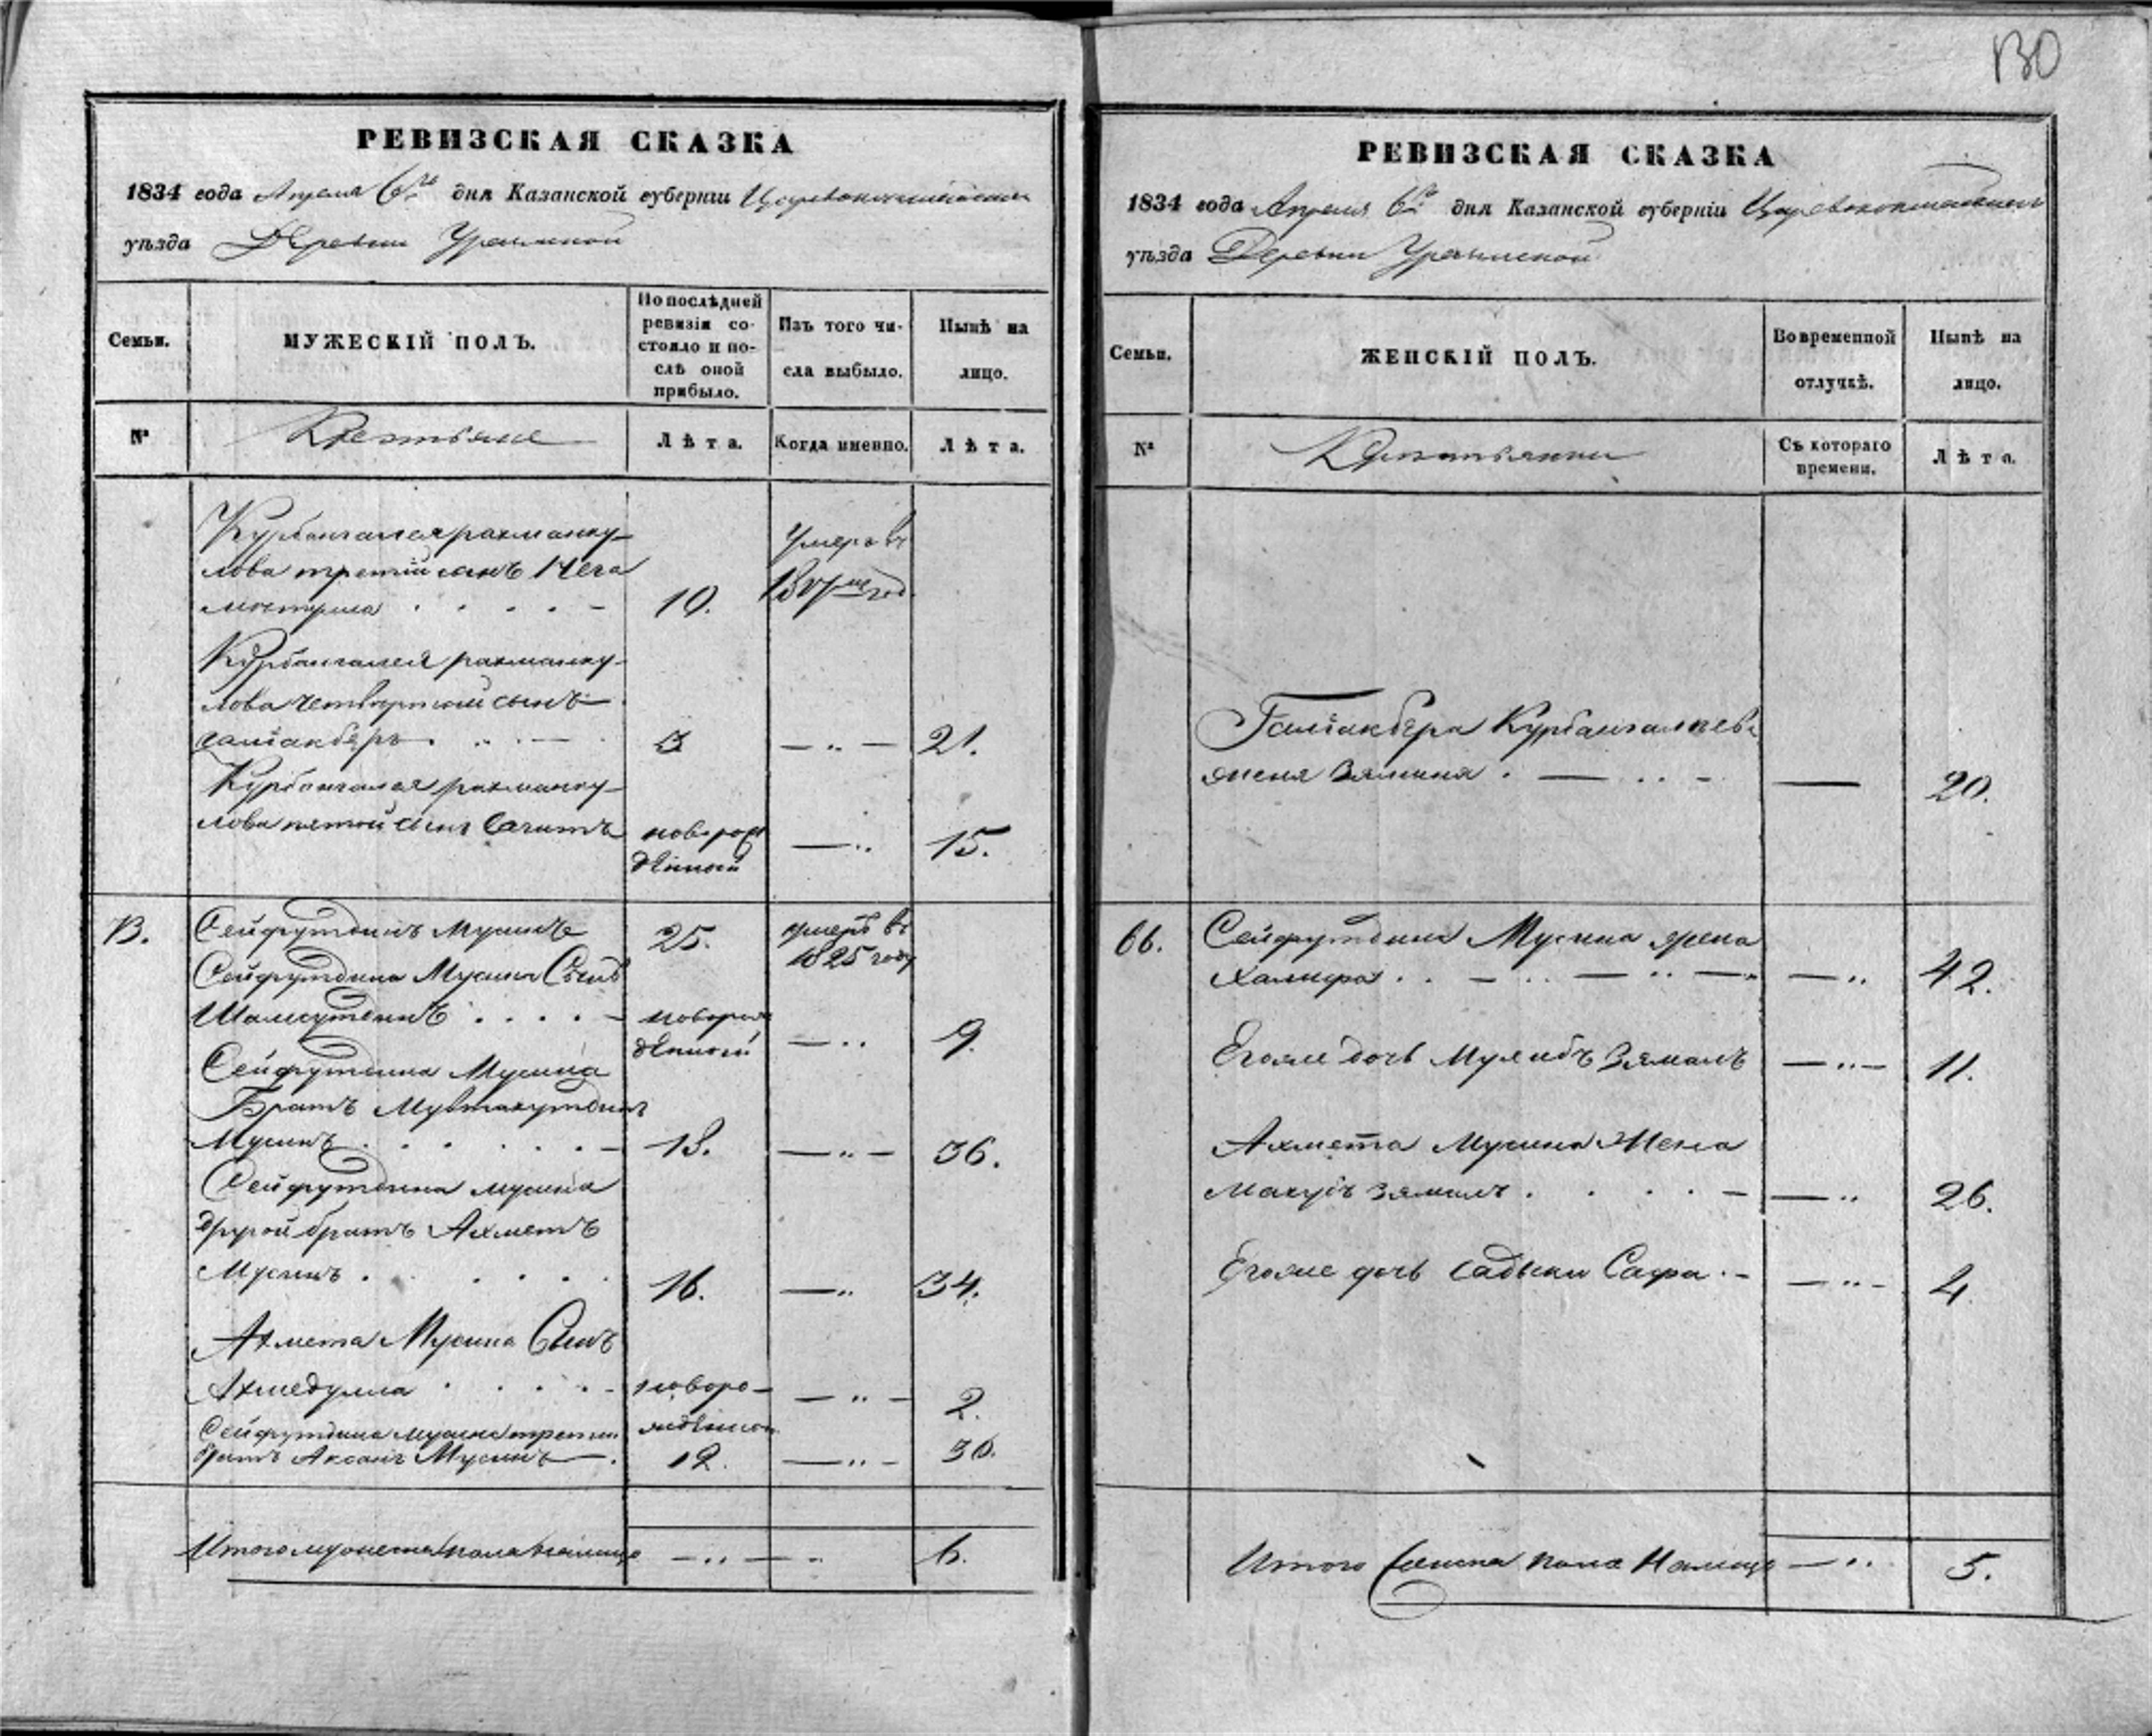 130
РЕВИЗСКАЯ СКАЗКА
1834 года Апреля 6го дня Казанской губернiи
уѣзда Деревни
Семьи.
МУЖЕСКІЙ ПОЛЪ.
По послѣдней
ревизіи со-
стояло и по-
слѣ оной
прибыло.
Изъ того чи-
сла выбыло.
Нынѣ на
лицо.
№
Крестьяне
Лѣта.
Когда именно.
Лѣта.
Курбангалея рахманку-
лова третiй сынъ
10.
умеръ въ
Курбангалея рахманку-
лова четвертой сынъ
галiакберъ
3
21.
Курбангалея рахманку-
лова пятой сынъ Сагитъ
новорож
денной
15.
Сейфутдинъ Мусинъ
25.
умеръ въ
1825 году
Сейфутдина Мусина Сынъ
Шамсутдинъ
новорож
денной
9.
Сейфутдина Мусина
Братъ
Мусинъ
36.
Сейфутдина мусина
другой братъ Ахметъ
Мусинъ
16.
34.
Ахмета Мусина Сынъ
Ахмедулла
новоро-
жденной
2.
Сейфутдина мусина третiй
братъ Аксанъ Мусинъ
12.
30.
Итого мужеска пола налицо
6.
РЕВИЗСКАЯ СКАЗКА
1834 года Апреля 6го дня Казанской губернiи Царевококшайского
уѣзда Деревни
Семьи.
ЖЕНСКІЙ ПОЛЪ.
Во временной
отлучкѣ.
Нынѣ на
лицо.
№
Крестьянки
Съ котораго
времени.
Лѣта.
Галiакбера Курбангалеева
жена Зямиля
20.
66.
Сейфутдина Мусина жена
42.
Егоже дочь Зямалъ
11.
Ахмета Мусина Жена
зямалъ
26.
Егоже дочь Садыки Сафа
4
Итого женска пола Налицо
5.